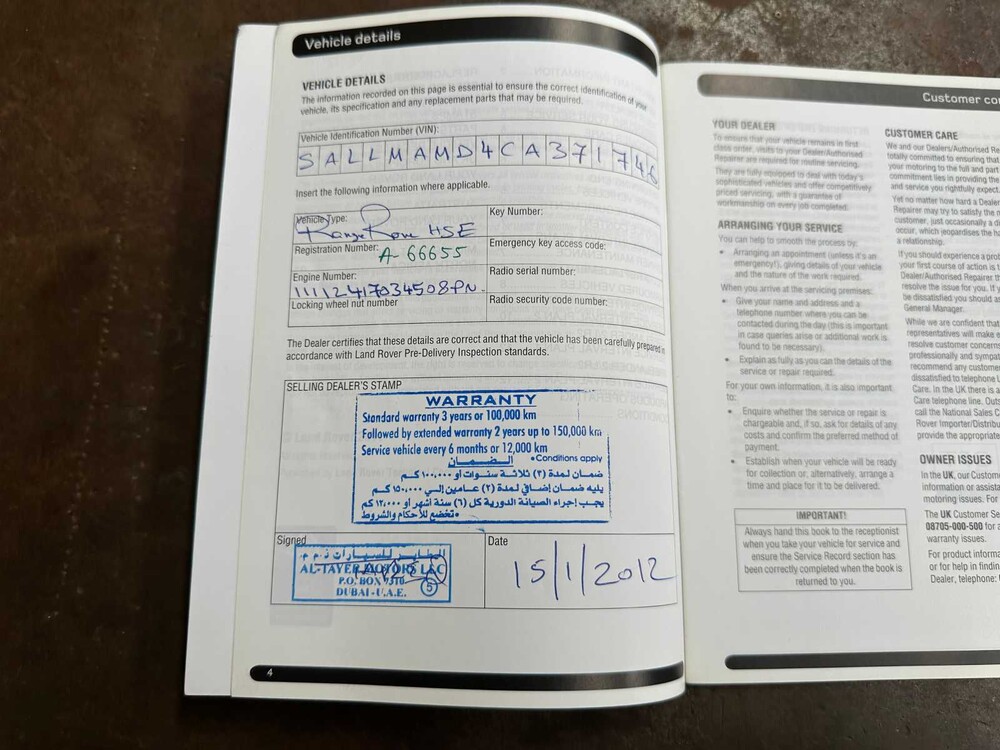 Vehicle details
VEHICLE DETAILS
The information recorded on this page is essential to ensure the correct identification of your
vehicle, its specification and any replacement parts that may be required.
Vehicle Identification Number (VIN):
SALLMAMD4CA371746
Insert the following information where applicable.
Vehicle Type:
Range Rover HSE
Registration Number:
A-66655
Engine Number:
11112417034508PN
Locking wheel nut number
Key Number:
Emergency key access code:
Radio serial number:
Radio security code number:
The Dealer certifies that these details are correct and that the vehicle has been carefully prepared in
accordance with Land Rover Pre-Delivery Inspection standards.
SELLING DEALER'S STAMP
WARRANTY
Standard warranty 3 years or 100,000 km
Followed by extended warranty 2 years up to 150,000 km
Service vehicle every 6 months or 12,000 km
•Conditions apply
الضمان
ضمان لمدة (٣) ثلاثة سنوات أو ١٠٠,٠٠٠ كم
يليه ضمان إضافي لمدة (٢) عامين إلى ١٥٠,٠٠٠ كم
يجب إجراء الصيانة الدورية كل (٦) ستة أشهر أو ١٢,٠٠٠ كم
•تخضع للأحكام والشروط
Signed
الطاير للسيارات ذ.م.م.
AL-TAYER MOTORS LLC
P.O. BOX 7310
DUBAI - U.A.E.
5
Date
15/1/2012
4
Customer co
YOUR DEALER
To ensure that your vehicle remains in first
class order, visits to your Dealer/Authorised
Repairer are required for routine servicing.
They are fully equipped to deal with today's
sophisticated vehicles and offer competitively
priced servicing, with a guarantee of
workmanship on every job completed.
ARRANGING YOUR SERVICE
You can help to smooth the process by:
• Arranging an appointment (unless it's an
emergency!), giving details of your vehicle
and the nature of the work required.
When you arrive at the servicing premises:
• Give your name and address and a
telephone number where you can be
contacted during the day (this is important
in case queries arise or additional work is
found to be necessary).
• Explain as fully as you can the details of the
service or repair required.
For your own information, it is also important
to:
• Enquire whether the service or repair is
chargeable and, if so, ask for details of any
costs and confirm the preferred method of
payment.
• Establish when your vehicle will be ready
for collection or, alternatively, arrange a
time and place for it to be delivered.
IMPORTANT!
Always hand this book to the receptionist
when you take your vehicle for service and
ensure the Service Record section has
been correctly completed when the book is
returned to you.
CUSTOMER CARE
We and our Dealers/Authorised Re
totally committed to ensuring that
your motoring to the full and part
commitment lies in providing the
and service you rightfully expect.
Yet no matter how hard a Dealer
Repairer may try to satisfy the n
customer, just occasionally a di
occur, which jeopardises the h
a relationship.
If you should experience a prob
your first course of action is t
Dealer/Authorised Repairer th
resolve the issue for you. If y
be dissatisfied you should a
General Manager.
While we are confident that
representatives will make e
resolve customer concerns
professionally and sympat
recommend any custome
dissatisfied to telephone
Care. In the UK there is a
Care telephone line. Outs
call the National Sales C
Rover Importer/Distribu
provide the appropriate
OWNER ISSUES
In the UK, our Custome
information or assista
motoring issues. For
The UK Customer Se
08705-000-500 for a
warranty issues.
For product informa
or for help in findin
Dealer, telephone: